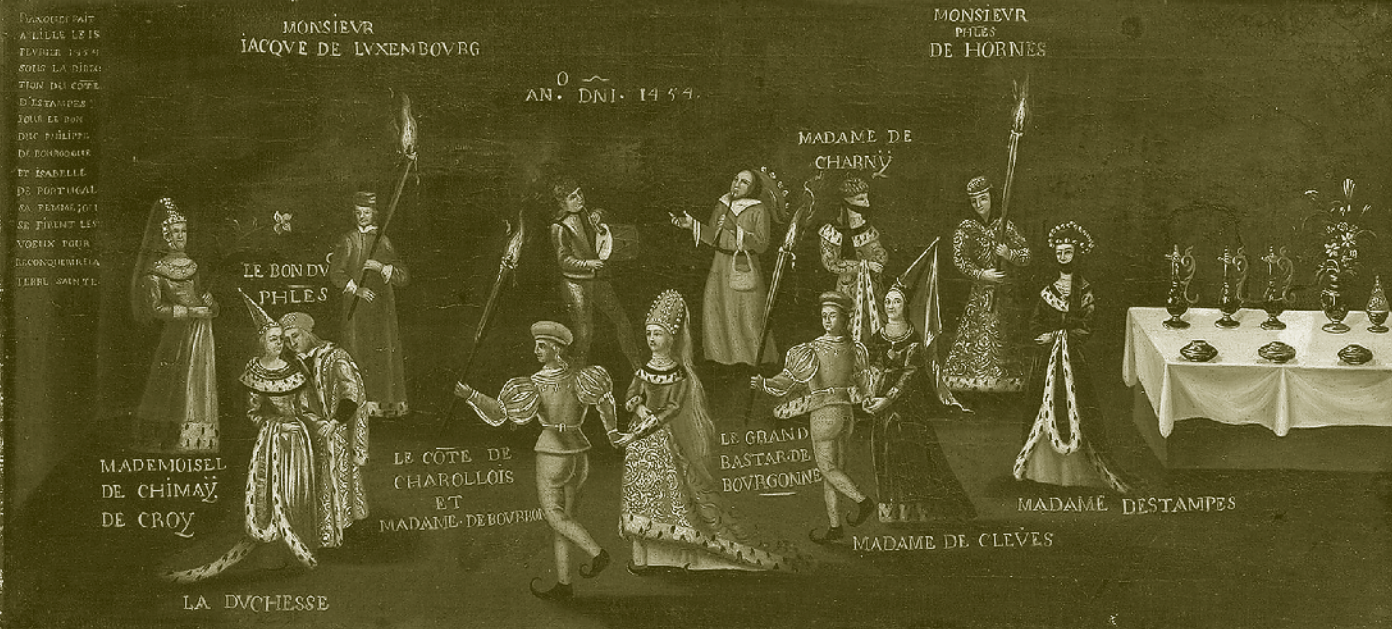 BANQUET FAIT
A LILLE LE 18
FEVRIER 1454
SOUS LA DIREC
TION DU CÕTE
D'ESTAMPES
POUR LE BON
DUC PHILIPPE
DE BOURGOGNE
ET ISABELLE
DE PORTUGAL
SA FEMME
SE FIRENT LES
VOEUX POUR
RECONQUERIR LA
TERRE SAINTE
MONSIEVR
IACQVE DE LVXEMBOVRG
ANO. DNI. 1454.
MONSIEVR
PHLES
DE HORNES
MADAME DE
CHARNŸ
LE BON DVC
PHLES
MADEMOISEL
DE CHIMAŸ
DE CROY
LE CÕTE DE
CHAROLLOIS
ET
MADAME DE BOVRBON
LE GRAND
BASTARDE
BOVRGONNE
MADAME DESTAMPES
MADAME DE CLEVES
LA DVCHESSE